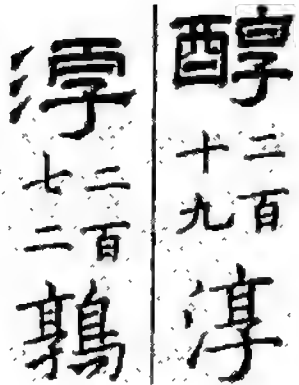 醇二百十九淳
二百七二鶉